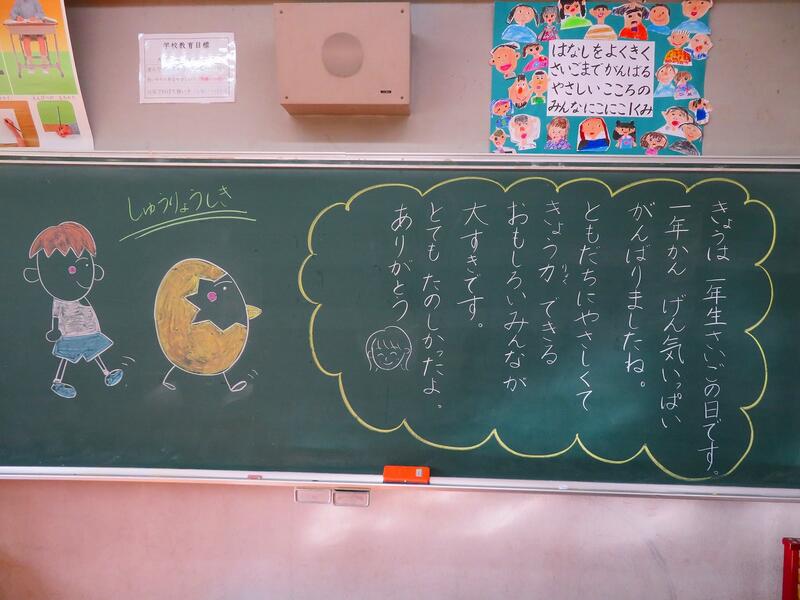 学校教育目標
はなしをよくきく
さいごまでがんばる
やさしいこころの
みんなにこにこ1くみ
しゅうりょうしき
きょうは一年生さいごの日です。
一年かん げん気いっぱい
がんばりましたね。
ともだちにやさしくて
きょう力 できる
りょく
おもしろいみんなが
大すきです。
とても たのしかったよ。
ありがとう